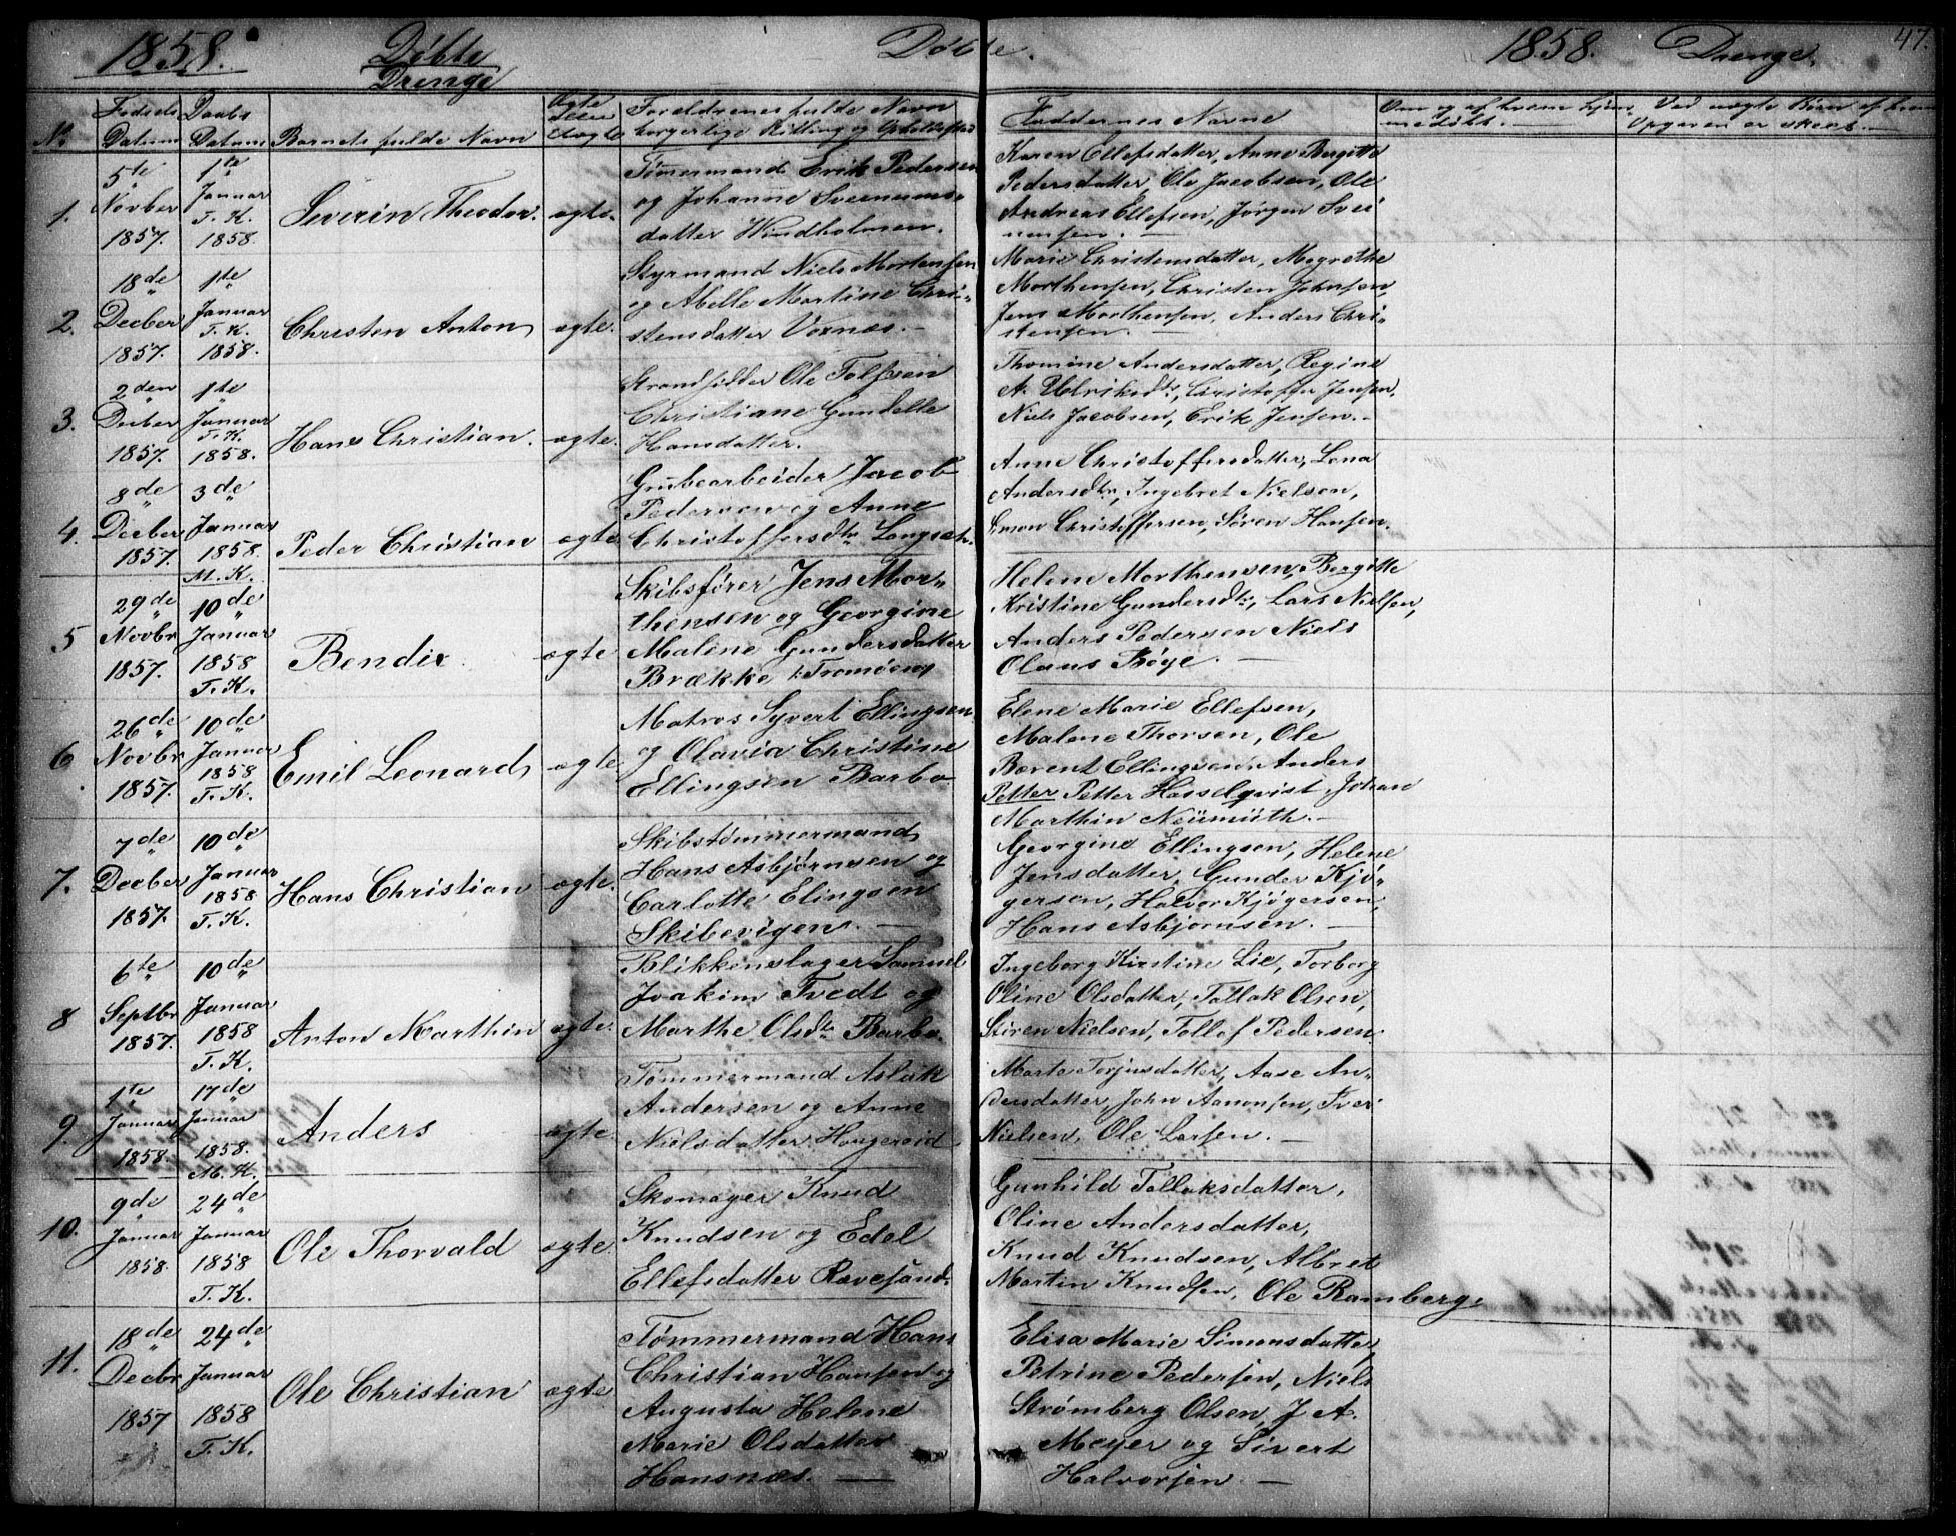 1858. Døbte Drenge
Døbte.
1858. Drenge. 47.
No. Fødsels Datum Daabs Datum Barnets fulde Navn Ægte eller Uægte Foreldrenes fulde Navn borgerlige Stilling og Opholdsted
Faddernes Navne
Om og af hvem hjemmedøbt. Ved uægte Børn af hvem Opgaven er skeet.
1. 5te Novber 1857. 1te Januar T. K. 1858. Severin Theodor. ægte.
Tømermand Erik Pedersen
og Johanne Sveinums-
datter Windholmen.
Karen Ellefsdatter, Anne Bergitte
Pedersdatter, Ole Jacobsen, Ole
Andreas Ellefsen, Jørgen Svei
nunsen.
2. 18de Decber 1857. 1te Januar T. K. 1858. Christen Anton ægte.
Styrmand Niels Mortensen
og Abelle Martine Chri-
stensdatter Voxnæs.
Marie Christensdatter, Magrethe
Morthensen, Christen Johnsen,
Jens Morthensen, Anders Chri-
stensen.
3. 2den Decber 1857. 1te Januar T. K. 1858. Hans Christian. ægte.
Strandsidder Ole Tolfsen
Christiane Gundelle
Hansdatter.
Thomine Andersdatter, Regine
A. Ulriksdtr, Christoffer Jensen,
Niels Jacobsen, Erik Jensen.
4. 8de Decber 1857. 3de Januar 1858. M. K. Peder Christian ægte
Grubearbeider Jacob
Pedersen og Anne
Christoffersdtr Langsæh.
Anne Christoffersdatter, Lena
Andersdtr, Ingebret Nielsen,
Simon Christoffersen, Søren Hansen.
5 29de Novbr 1857. 10de Januar 1858 T. K. Bendix. ægte
Skibsfører Jens Mor-
thensen og Georgine
Maline Gundersdatter
Brække Tromøen
Helene Morthensen, Bergitte
Kristine Gundersdtr, Lars Nielsen,
Anders Pedersen Niels
Olaus Bøye.
6 26de Novbr 1857. 10de Januar 1858 T. K. Emil Leonard ægte
Matros Syvert Ellingsen
og Olavia Christine
Ellingsen Barbo
Elene Marie Ellefsen,
Malene Thorsen, Ole
Berent Ellingsen, Anders
Petter Petter Hasselqvist, Johan
Marthin Neümüth.
7. 7de Decber 1857. 10de Januar 1858 T. K. Hans Christian ægte.
Skibstømmermand
Hans Asbjørnsen og
Carlotte Elingsen
Skibevigen.
Georgine Ellingsen, Helene
Jensdatter, Gunder Kjø-
gersen, Halvor Kjøgersen,
Hans Asbjørnsen.
8 6te Septbr 1857. 10de Januar 1858 T. K. Anton Marthin ægte.
Blikkenslager Samuel
Joakim Tvedt og
Marthe Olsdtr Barbo.
Ingeborg Kirstine Lie, Torborg
Oline Olsdatter, Tallak Olsen,
Søren Nielsen, Tollof Pedersen
9. 1te Januar 1858. 17de Januar 1858. M. K. Anders ægte.
Tømmermand Aslak
Andersen og Anne
Nielsdatter Haugereid
Marte Torjusdatter, Aase An-
dersdatter, John Aanonsen, Iver
Nielsen, Ole Larsen.
10. 9de Januar 1858. 24de Januar 1858 T. K. Ole Thorvald ægte
Skomager Knud
Knudsen og Edel
Ellefsdatter Rævesand.
Gunhild Tallaksdatter,
Oline Andersdatter,
Knud Knudsen, Albret
Martin Knudsen, Ole Ramberg.
11. 18de Decbr 1857 24de Januar 1858 T. K. Ole Christian ægte
Tømmermand Hans
Christian Hansen og
Augusta Helene
Marie Olsdatter
Hansnæs.
Elisa Marie Simonsdatter,
Petrine Pedersen, Niels
Strømberg Olsen, J A.
Meyer og Sivert
Halvorsen.